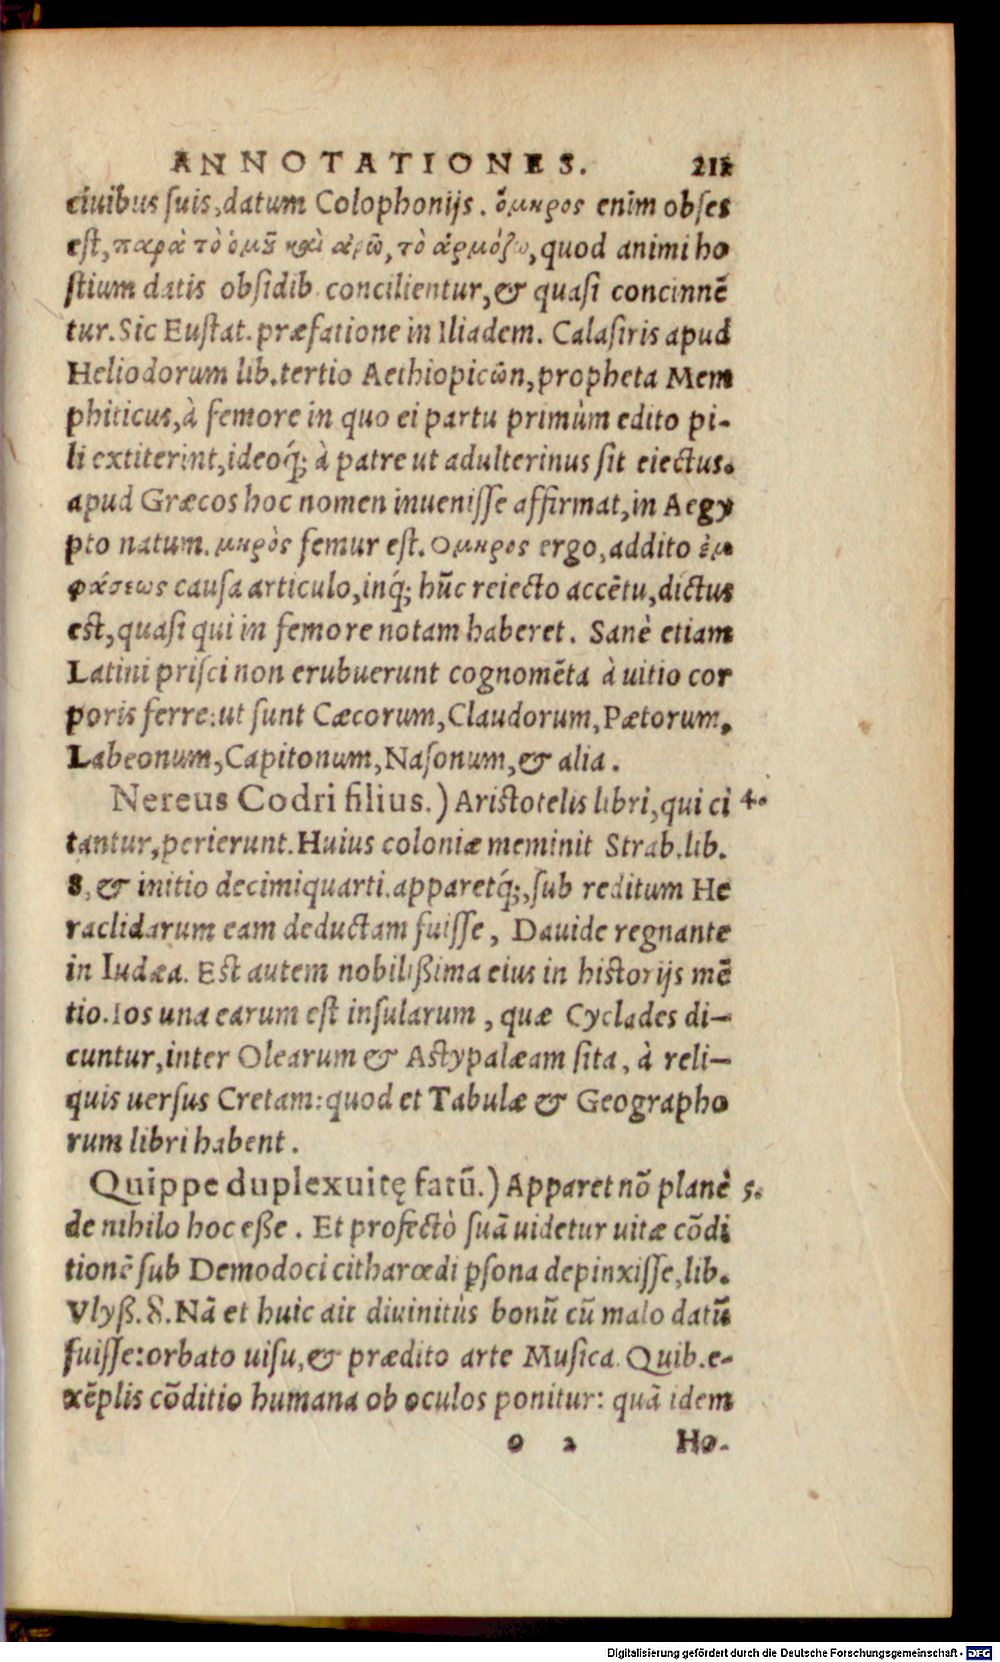 ANNOTATIONES. 211
ciuibus suis, datum Colophonijs. ὅμηρος enim obses
est, παρὰ τὸ ὁμοῦ καὶ ἀρῶ, τὸ ἁρμόζω, quod animi ho
stium datis obsidib. concilientur, & quasi concinnē
tur. Sic Eustat. præfatione in Iliadem. Calasiris apud
Heliodorum lib. tertio Aethiopicῶn, propheta Mem
phiticus, à femore in quo ei partu primùm edito pi-
li extiterint, ideoq́; à patre ut adulterinus sit eiectus.
apud Græcos hoc nomen inuenisse affirmat, in Aegy
pto natum. μηρὸς femur est. Ομηρος ergo, addito ἐμ
φάσεως causa articulo, inq́; hūc reiecto accētu, dictus
est, quasi qui in femore notam haberet. Sanè etiam
Latini prisci non erubuerunt cognomēta à uitio cor
poris ferre: ut sunt Cæcorum, Claudorum, Pætorum,
Labeonum, Capitonum, Nasonum, & alia.
Nereus Codri filius.) Aristotelis libri, qui ci 4.
tantur, perierunt. Huius coloniæ meminit Strab. lib.
8, & initio decimiquarti. apparetq́;, sub reditum He
raclidarum eam deductam fuisse, Dauide regnante
in Iudæa. Est autem nobilißima eius in historijs mē
tio. Ios una earum est insularum, quæ Cyclades di-
cuntur, inter Olearum & Astypalæam sita, à reli-
quis uersus Cretam: quod et Tabulæ & Geographo
rum libri habent.
Quippe duplex uitę fatū.) Apparet nō planè 5.
de nihilo hoc eße. Et profectò suā uidetur uitæ cōdi
tionē sub Demodoci citharœdi psona depinxisse, lib.
Vlyß. 8. Nā et huic ait diuinitùs bonū cū malo datū
fuisse: orbato uisu, & prædito arte Musica. Quib. e-
xēplis cōditio humana ob oculos ponitur: quā idem
o 2 Ho-
Digitalisierung gefördert durch die Deutsche Forschungsgemeinschaft - DFG